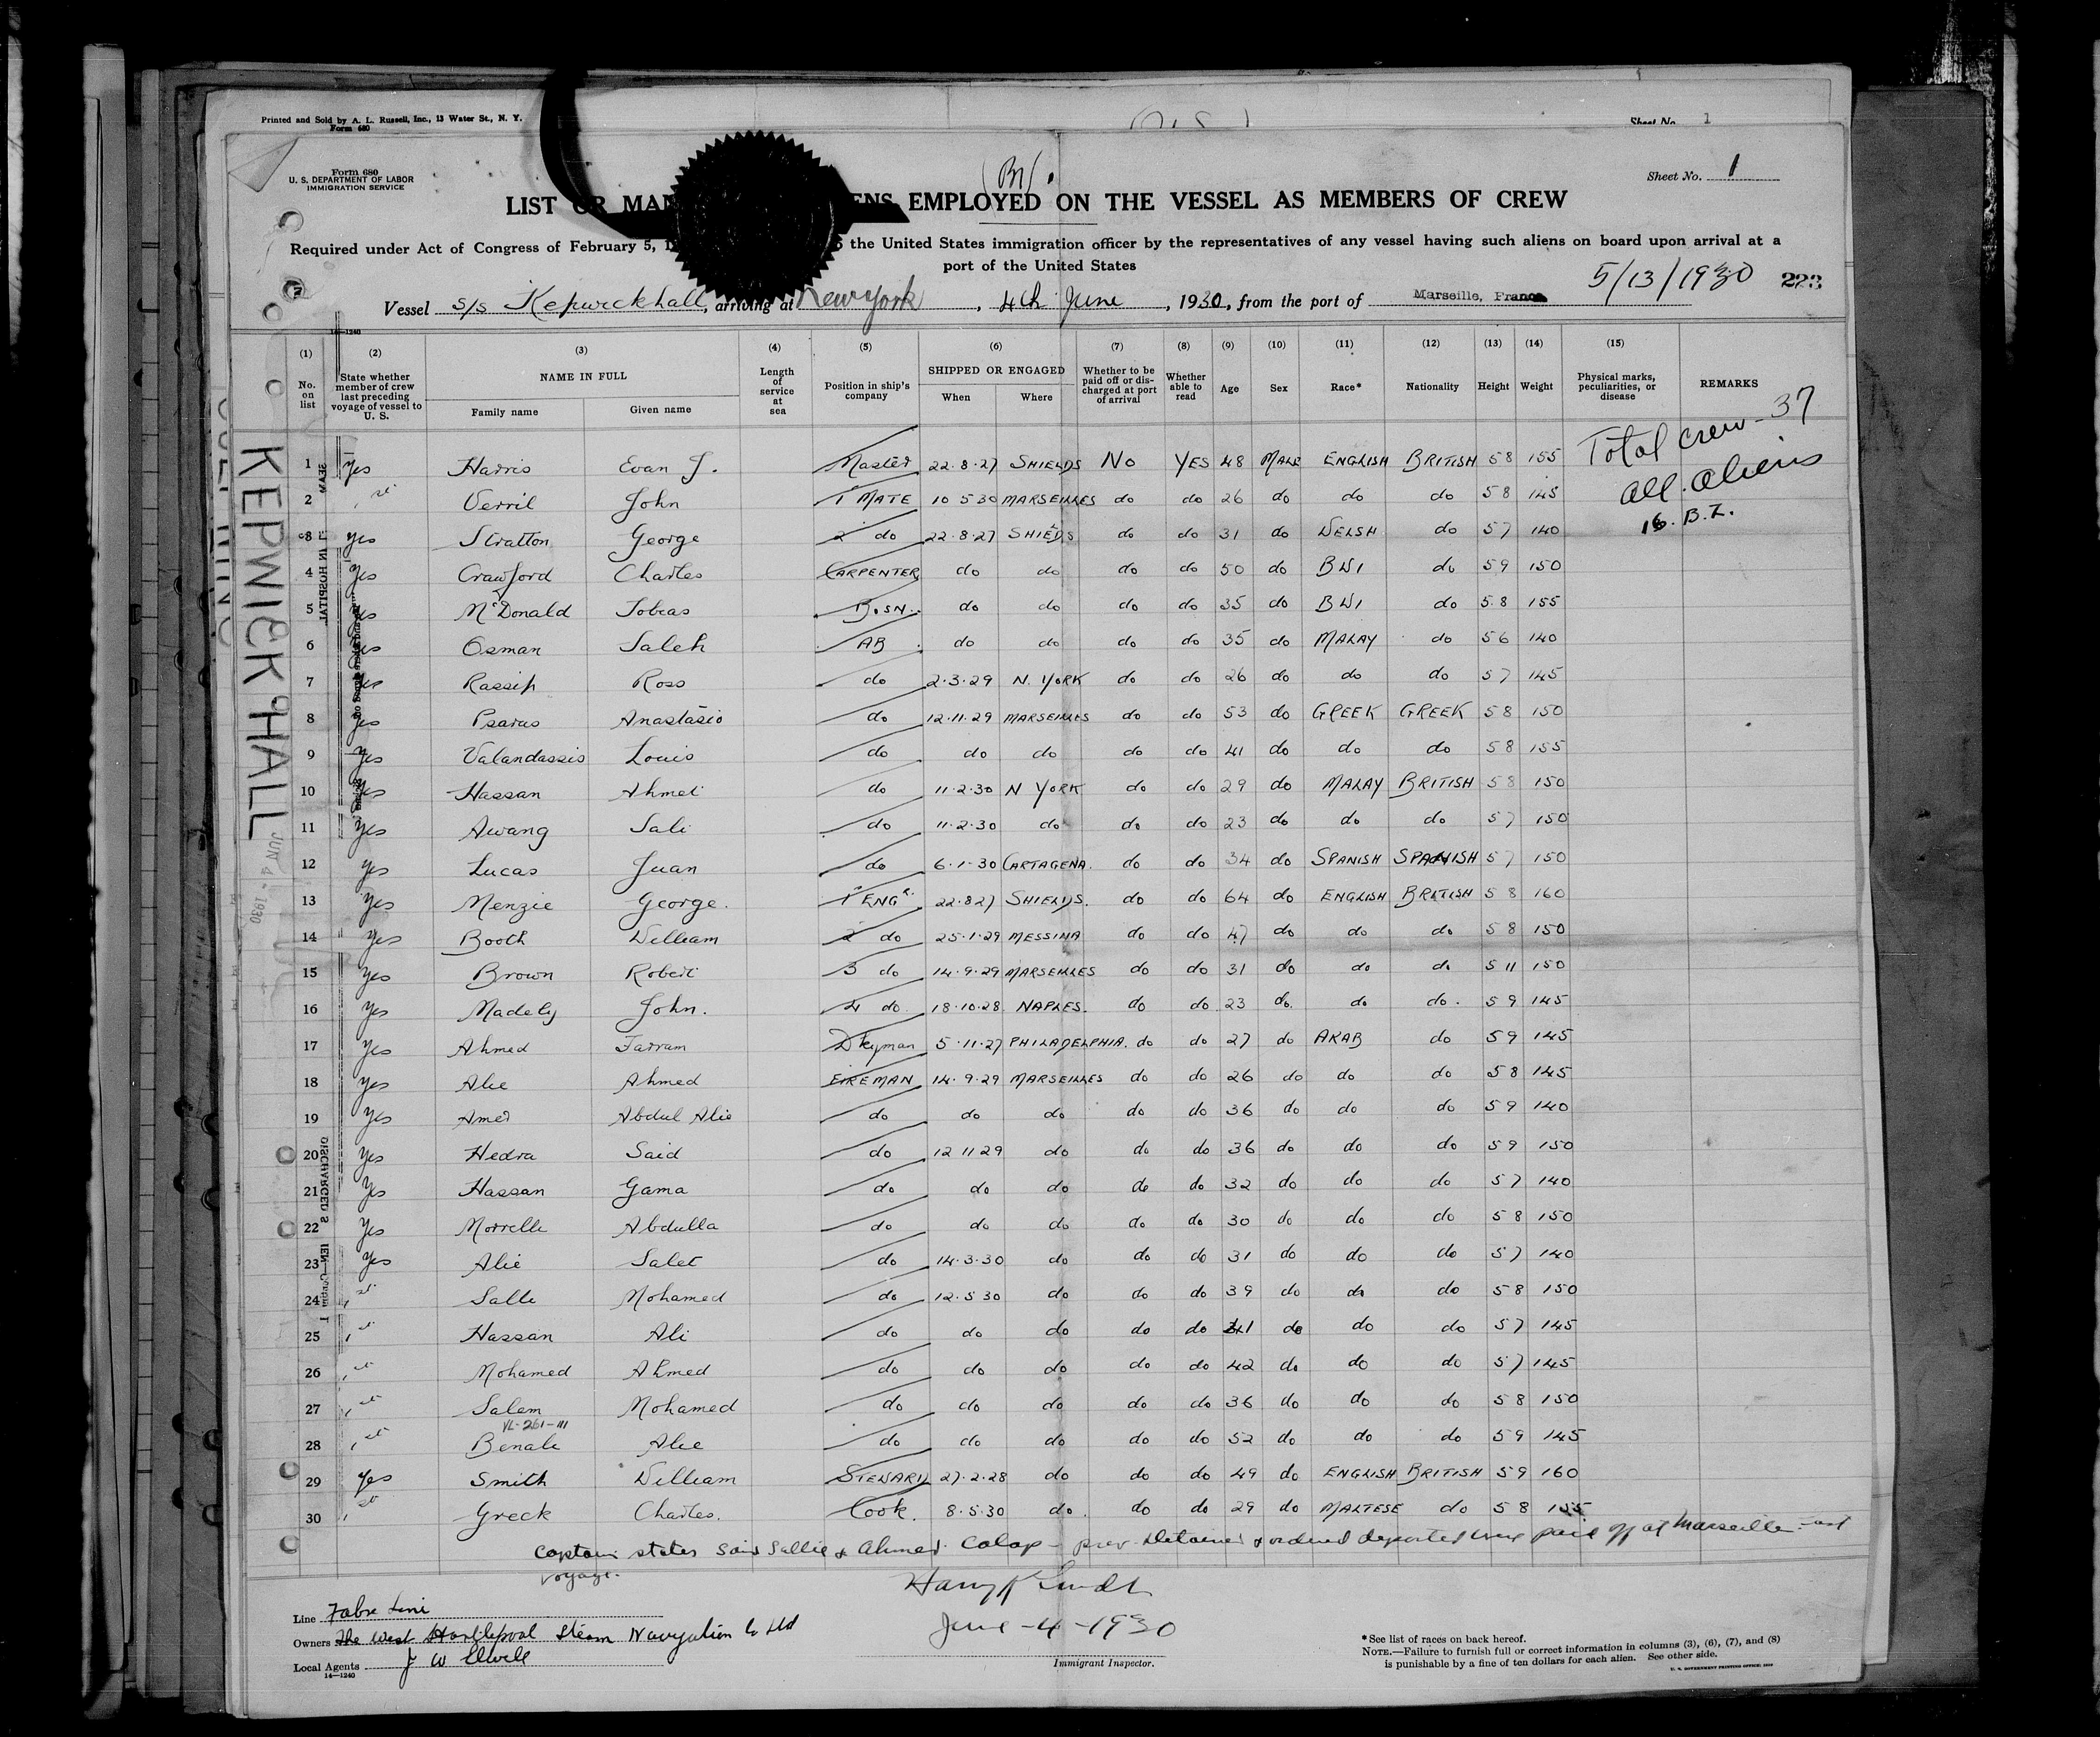 Printed and Sold by A. L. Russell, Inc., 13 Water St., N. Y.
Form 680
Sheet No. 1
Form 680
U. S. DEPARTMENT OF LABOR
IMMIGRATION SERVICE
Sheet No. 1
LIST OR MAN ENS EMPLOYED ON THE VESSEL AS MEMBERS OF CREW
Required under Act of Congress of February 5, the United States immigration officer by the representatives of any vessel having such aliens on board upon arrival at a
port of the United States
5/13/1930 223
Vessel S/S Kepwickhall, arriving at New York, 4th June, 1930, from the port of Marseille, France
14—1240
(1) (2) (3) (4) (5) (6) (7) (8) (9) (10) (11) (12) (13) (14) (15)
No. on list State whether member of crew last preceding voyage of vessel to U. S. NAME IN FULL Family name Given name Length of service at sea Position in ship's company SHIPPED OR ENGAGED When Where Whether to be paid off or discharged at port of arrival Whether able to read Age Sex Race* Nationality Height Weight Physical marks, peculiarities, or disease REMARKS
Total crew - 37
all aliens
16. B.I.
KEPWICK HALL
JUN 4 - 1930
1 Yes Harris Evan J. Master 22.8.27 SHIELDS No YES 48 MALE ENGLISH BRITISH 5 8 155
2 Verril John 1 MATE 10 5 30 MARSEILLES do do 26 do do do 5 8 145
3 yes Stratton George 2 do 22.8.27 SHIELDS do do 31 do WELSH do 5 7 140
4 Yes Crawford Charles CARPENTER do do do do 50 do BWI do 5 9 150
5 Yes McDonald Tobias BOSN. do do do do 35 do BWI do 5 8 155
6 Yes Osman Saleh AB do do do do 35 do MALAY do 5 6 140
7 Yes Rassip Ross do 2.3.29 N. YORK do do 26 do do do 5 7 145
8 Yes Psaras Anastasio do 12.11.29 MARSEILLES do do 53 do GREEK GREEK 5 8 150
9 Yes Valandassis Louis do do do do do 41 do do do 5 8 155
10 Yes Hassan Ahmet do 11.2.30 N YORK do do 29 do MALAY BRITISH 5 8 150
11 Yes Awang Sali do 11.2.30 do do do 23 do do do 5 7 150
12 Yes Lucas Juan do 6.1.30 CARTAGENA. do do 34 do SPANISH SPANISH 5 7 150
13 Yes Menzie George. 1 ENGR. 22.8 27 SHIELDS. do do 64 do ENGLISH BRITISH 5 8 160
14 Yes Booth William 2 do 25.1.29 MESSINA do do 47 do do do 5 8 150
15 Yes Brown Robert 3 do 14.9.29 MARSEILLES do do 31 do do do 5 11 150
16 Yes Madely John. 4 do 18.10.28 NAPLES. do do 23 do. do do. 5 9 145
17 Yes Ahmed Farram Dkyman 5.11.27 PHILADELPHIA. do do 27 do ARAB do 5 9 145
18 Yes Alie Ahmed FIREMAN 14.9.29 MARSEILLES do do 26 do do do 5 8 145
19 Yes Amer Abdul Alie do do do do do 36 do do do 5 9 140
20 Yes Hedra Said do 12 11 29 do do do 36 do do do 5 9 150
21 Yes Hassan Gama do do do do do 32 do do do 5 7 140
22 Yes Morrelle Abdulla do do do do do 30 do do do 5 8 150
23 Yes Alie Salet do 14.3.30 do do do 31 do do do 5 7 140
24 Salle Mohamed do 12.5 30 do do do 39 do do do 5 8 150
25 Hassan Ali do do do do do 41 do do do 5 7 145
26 Mohamed Ahmed do do do do do 42 do do do 5 7 145
27 Salem Mohamed do do do do do 36 do do do 5 8 150
VL-261-111
28 Benale Alee do do do do do 52 do do do 5 9 145
29 Yes Smith William STEWARD 27.2.28 do do do 49 do ENGLISH BRITISH 5 9 160
30 Greck Charles. Cook. 8.5.30 do. do do 29 do MALTESE do 5 8 155
Captain states Said Sallie & Ahmed Calap - prev. Detained & ordered deported were paid off at Marseille last
voyage.
Line Fabre Line
Owners The West Hartlepool Steam Navigation Co Ltd
Local Agents J W Elwell
14—1240
June - 4 - 1930
Immigrant Inspector.
*See list of races on back hereof.
NOTE.—Failure to furnish full or correct information in columns (3), (6), (7), and (8)
is punishable by a fine of ten dollars for each alien. See other side.
U. S. GOVERNMENT PRINTING OFFICE